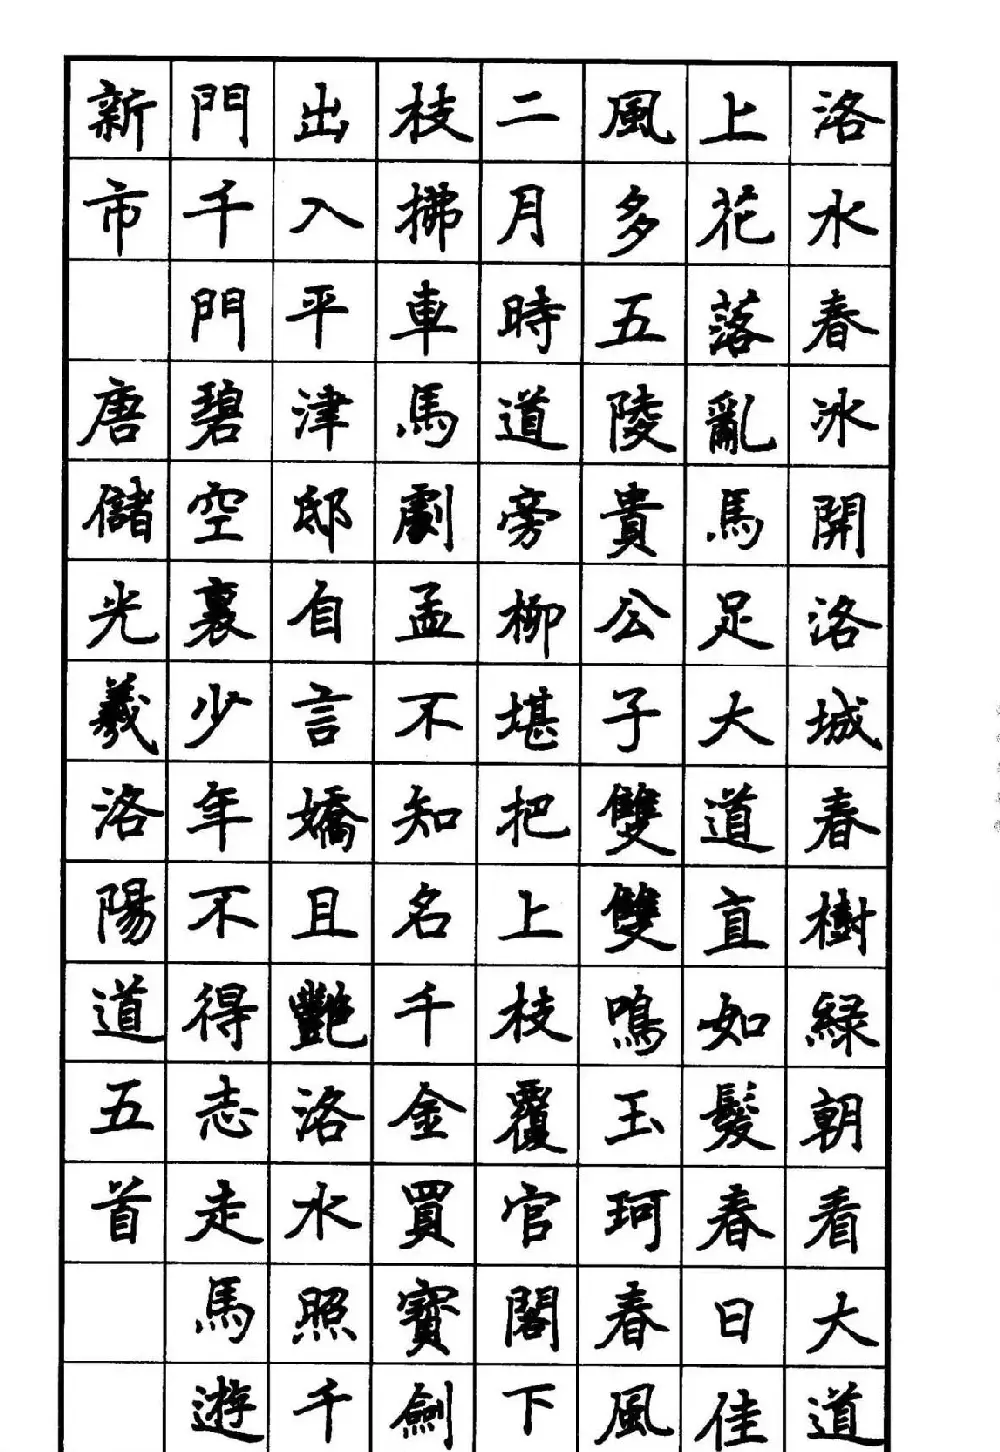 洛水春冰開洛城春樹綠朝看大道
上花落亂馬足大道直如髮春日佳
風多五陵貴公子雙雙鳴玉珂春風
二月時道旁柳堪把上枝覆官閣下
枝拂車馬劇孟不知名千金買寶劍
出入平津邸自言嬌且艷洛水照千
門千門碧空裏少年不得志走馬遊
新市 唐儲光羲洛陽道五首